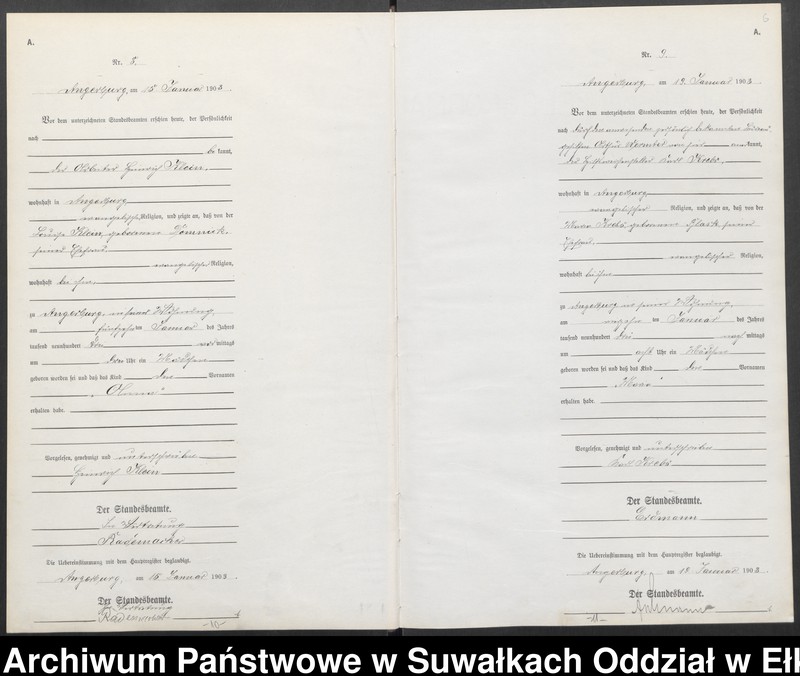 A.
Nr. 8.
Angerburg, am 15. Januar 1903.
Vor dem unterzeichneten Standesbeamten erschien heute, der Persönlichkeit
nach
be kannt,
der Heinrich Klein,
wohnhaft in Angerburg
evangelischer Religion, und zeigte an, daß von der
Louise Klein, geborenen Dominik
seiner Ehefrau
evangelischer Religion,
wohnhaft bei ihm,
zu Angerburg, in seiner Wohnung,
am fünfzehnten Januar des Jahres
tausend neunhundert drei mittags
um drei Uhr ein Mädchen
geboren worden sei und daß das Kind den Vornamen
erhalten habe.
Vorgelesen, genehmigt und unterschrieben
Heinrich Klein
Der Standesbeamte.
In Vertretung
Rademacher
Die Uebereinstimmung mit dem Hauptregister beglaubigt.
Angerburg, am 15. Januar 1903.
Der Standesbeamte.
In Vertretung
Rademacher
6
A.
Nr. 9.
Angerburg, am 19. Januar 1903.
Vor dem unterzeichneten Standesbeamten erschien heute, der Persönlichkeit
nach durch den
kannt,
der Karl Krebs,
wohnhaft in Angerburg
evangelischer Religion, und zeigte an, daß von der
Krebs, geborenen seiner
Ehefrau,
evangelischer Religion,
wohnhaft bei ihm
zu Angerburg in seiner Wohnung,
am ten Januar des Jahres
tausend neunhundert drei nach mittags
um acht Uhr ein Mädchen
geboren worden sei und daß das Kind den Vornamen
erhalten habe.
Vorgelesen, genehmigt und unterschrieben
Karl Krebs
Der Standesbeamte.
Erdmann
Die Uebereinstimmung mit dem Hauptregister beglaubigt.
Angerburg, am 19. Januar 1903.
Der Standesbeamte.
Archiwum Państwowe w Suwałkach Oddział w Ełk